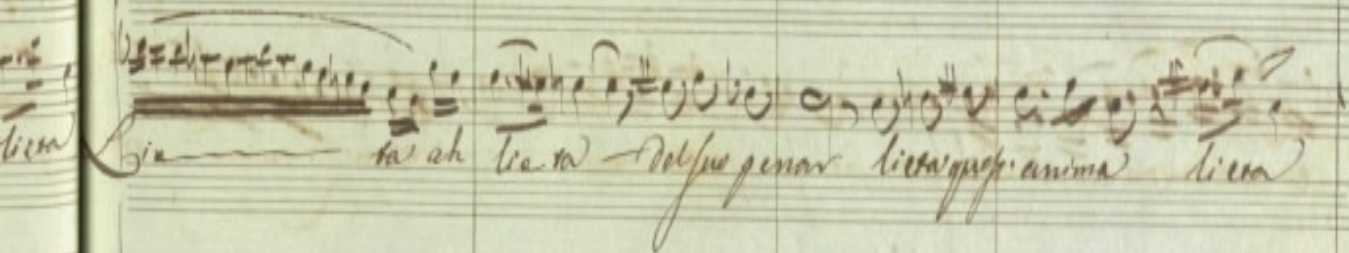 lieta lie ta ah lieta del suo penar lieta quest' anima lieta